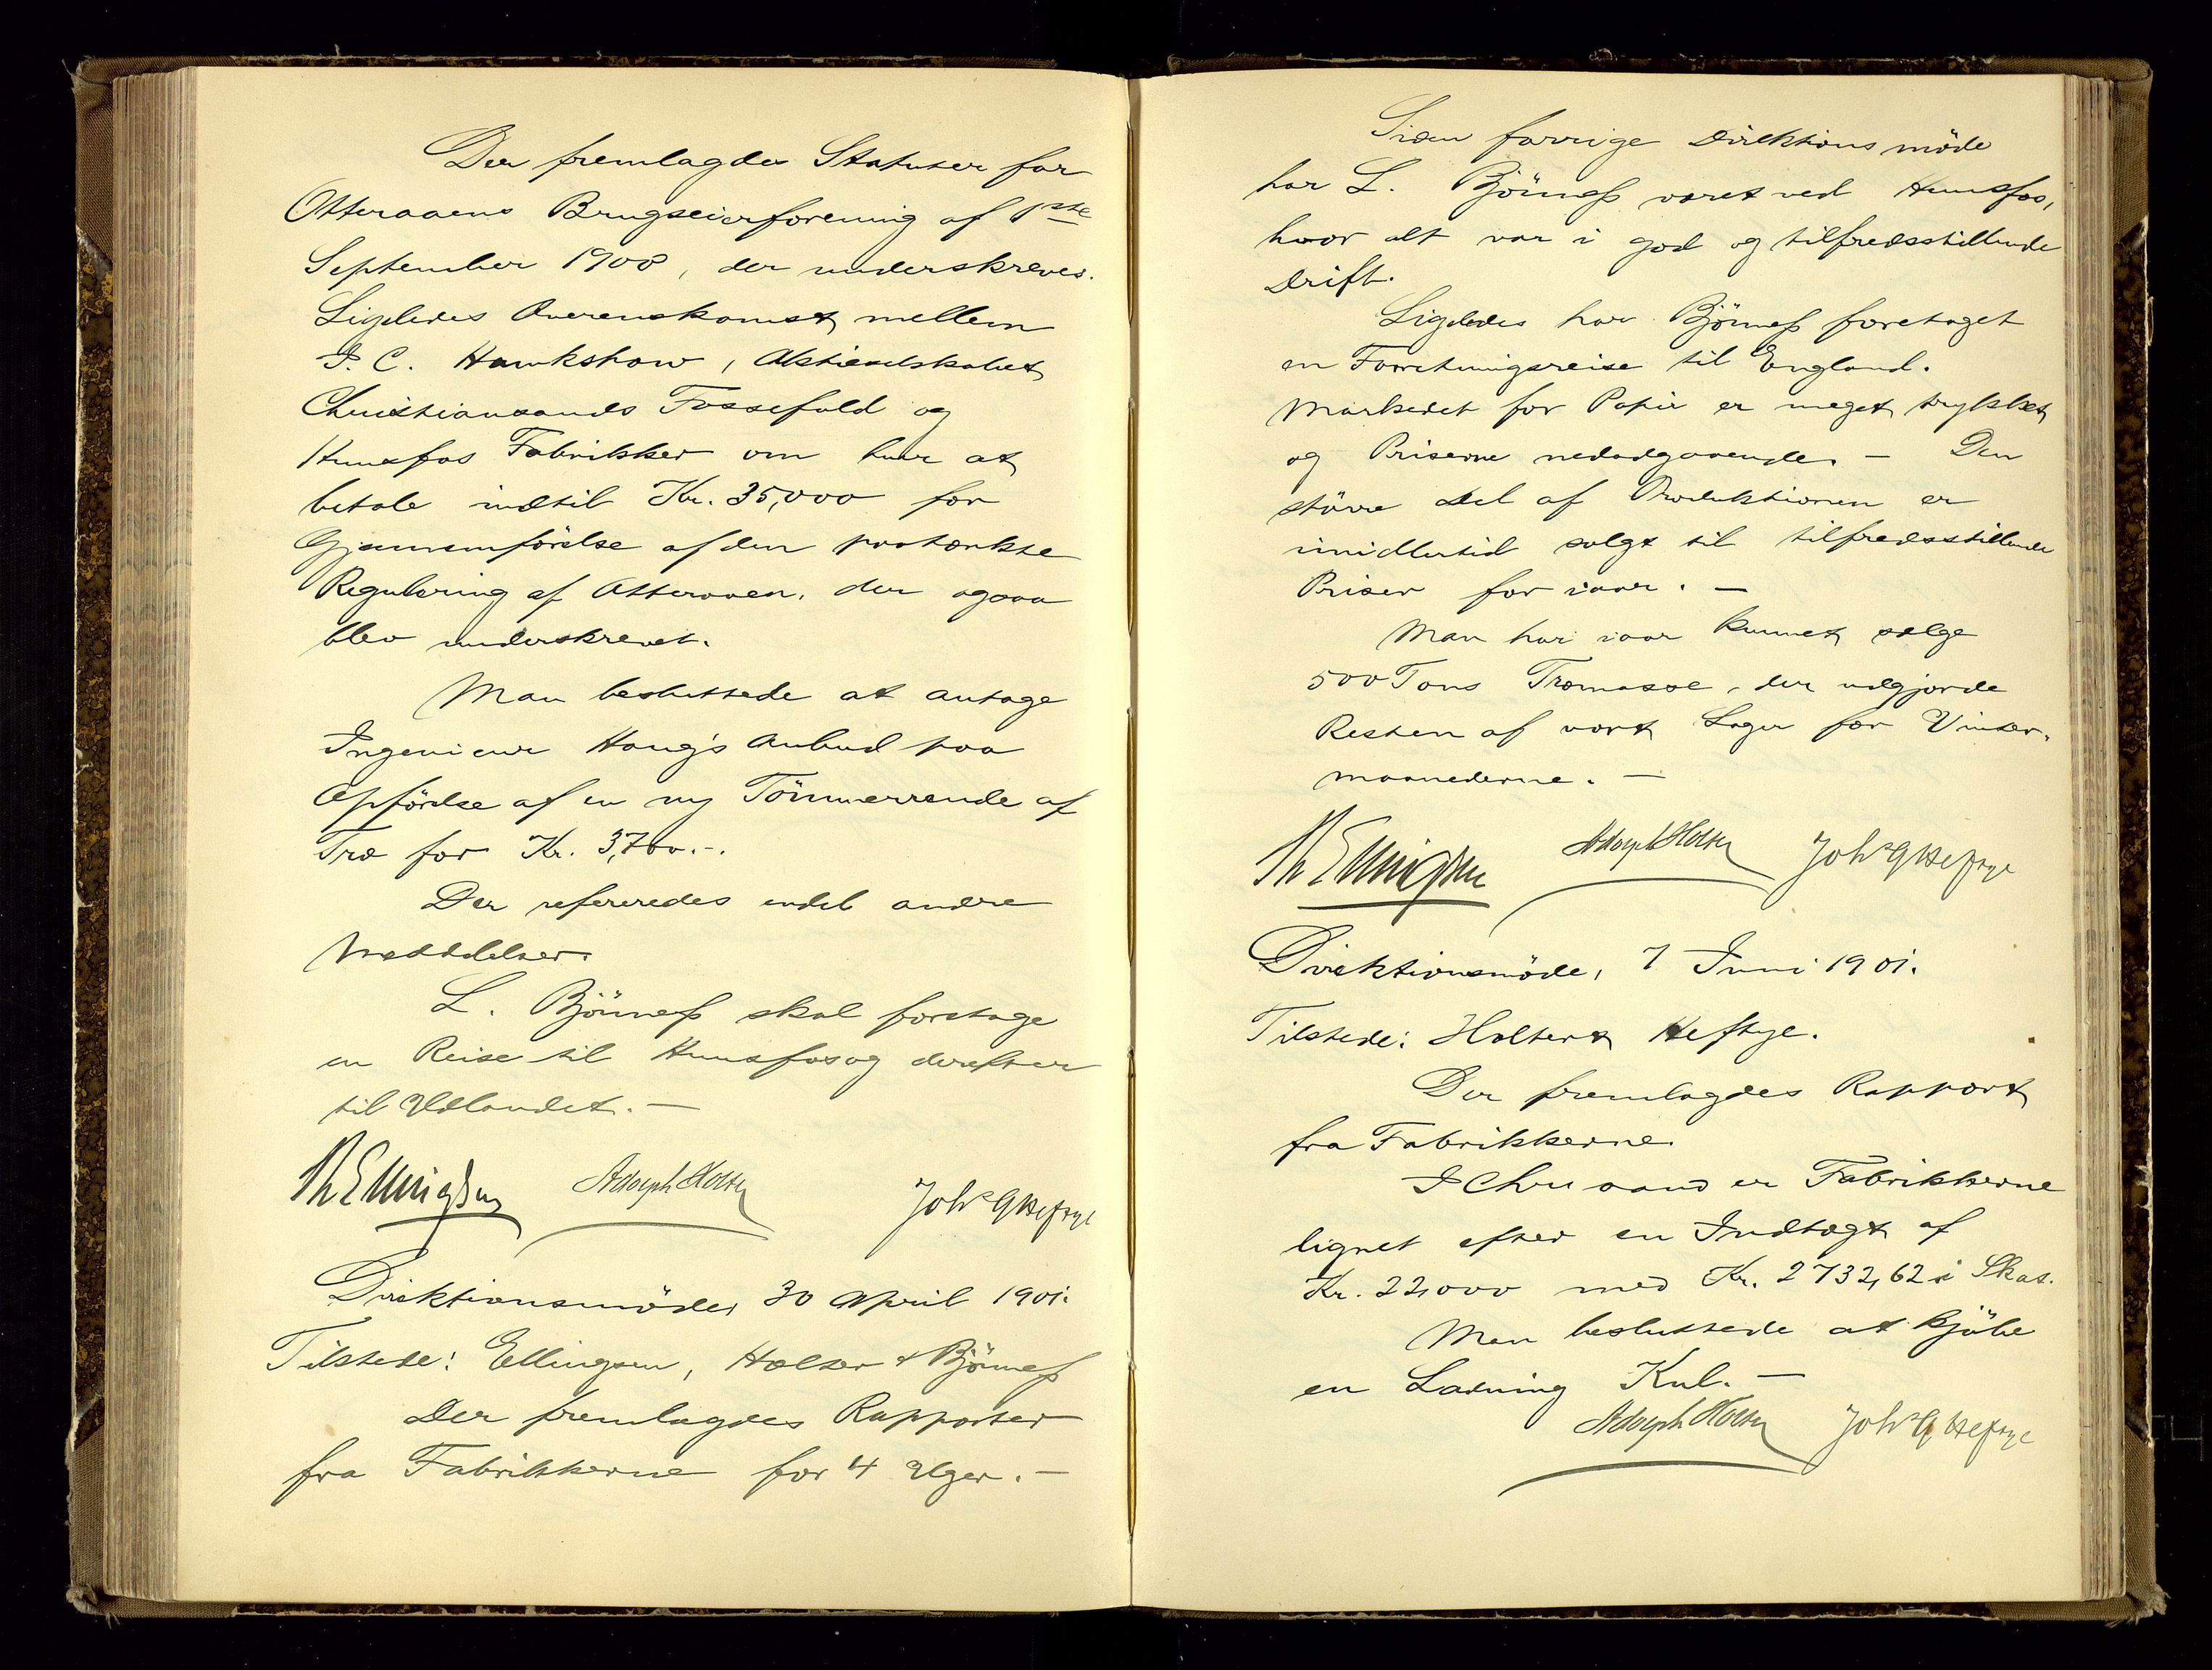 Der fremlagdes Statuter for
Otteraaens Brugseierforening af 1ste
September 1900, der underskreves.
Ligeledes Overenskomst mellem
J. C. Hawkshaw, Aktieselskabet
Christianssands Fossefald og
Hunsfos Fabrikker om hver at
betale indtil Kr. 35,000 for
Gjennemförelse af den paatænkte
Regulering af Otteraaen, der ogsaa
blev underskrevet.
Man besluttede at antage
Ingenieur Houg's Anbud paa
Opförelse af en ny Tömmerrende af
Træ for Kr. 3,700.-.
Der refereredes endel andre
Meddelelser.
L. Björneß skal foretage
en Reise til Hunsfos og derefter
til Udlandet. —
Th Ellingsen Adolph Holter Johs G Heftye
Direktionsmöde, 30 April 1901.
Tilstede: Ellingsen, Holter & Björneß
Der fremlagdes Rapporter
fra Fabrikkerne for 4 Uger. —
Siden forrige Direktionsmöde
har L. Björneß været ved Hunsfos,
hvor alt var i god og tilfredsstillende
Drift.
Ligeledes har Björneß foretaget
en Forretningsreise til England.
Markedet for Papir er meget trykket
og Priserne nedadgaaende. — Den
större Del af Produktionen er
imidlertid solgt til tilfredsstillende
Priser for iaar. —
Man har iaar kunnet sælge
500 Tons Træmasse, der udgjorde
Resten af vort Lager for Vinter-
maanederne. —
Th Ellingsen Adolph Holter Johs G Heftye
Direktionsmöde, 7 Juni 1901.
Tilstede: Holter & Heftye.
Der fremlagdes Rapport
fra Fabrikkerne.
I Chrsand er Fabrikkerne
lignet efter en Indtægt af
Kr. 22,000 med Kr. 2732,62 i Skat.
Man besluttede at kjöbe
en Ladning Kul. —
Adolph Holter Johs G Heftye